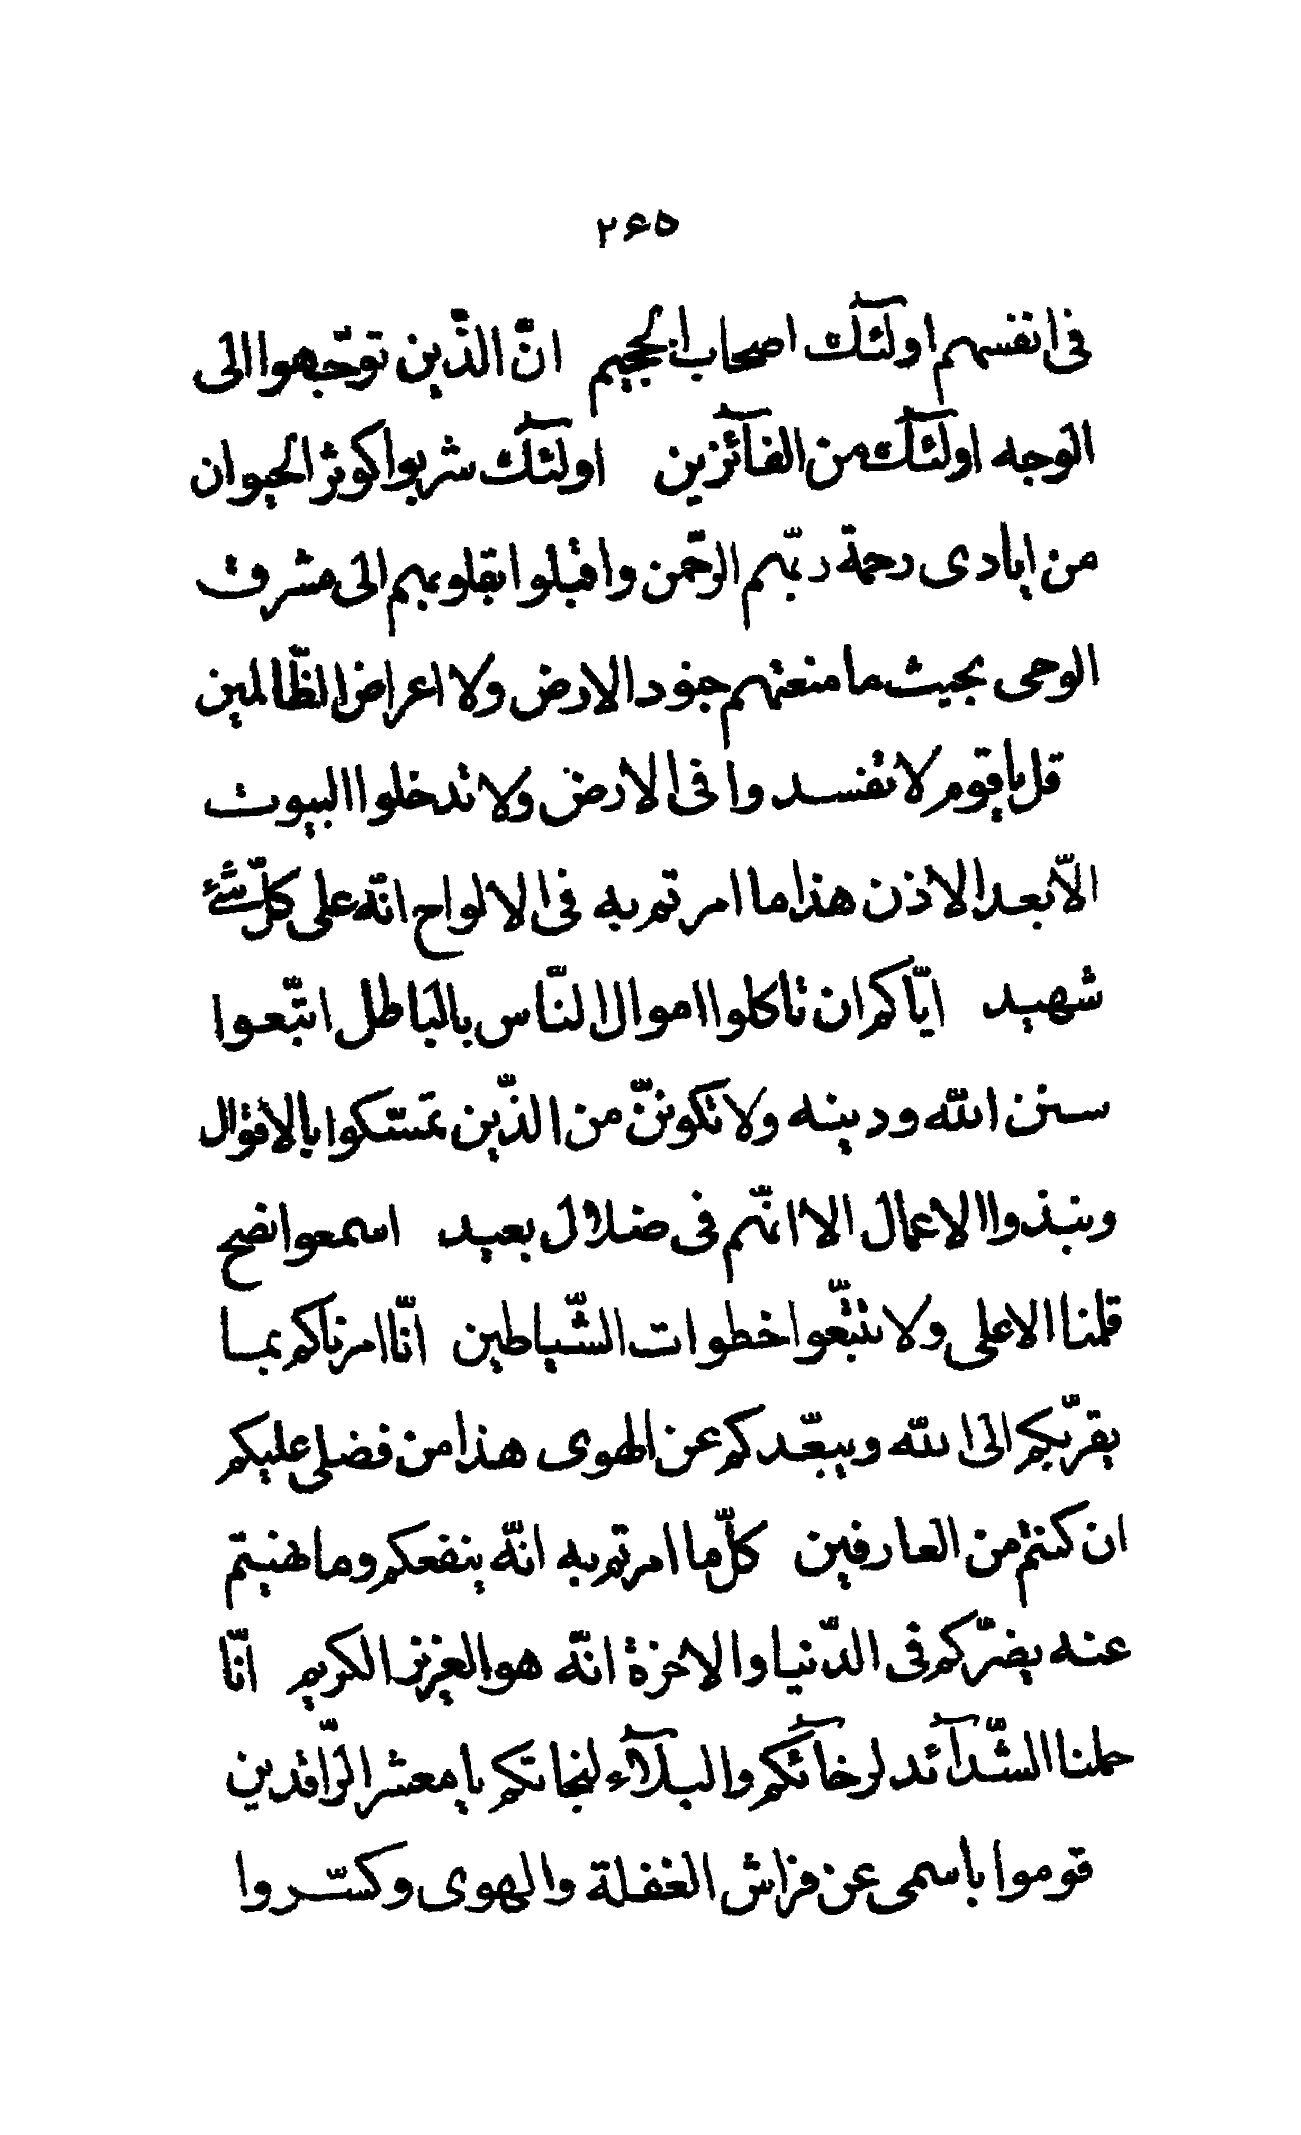 ۲۶۵
فی انفسهم اولئٓک اصحاب الجحیم انّ الّذین توجّهوا الی
الوجه اولئٓک من الفآئزین اولئٓک شربوا کوثر الحیوان
من ایادی رحمة ربّهم الرّحمن واقبلوا بقلوبهم الی مشرق
الوحی بحیث ما منعتهم جنود الارض ولا اعراض الظّالمین
قل یا قوم لا تفسدوا فی الارض ولا تدخلوا البیوت
الّا بعد الاذن هذا ما امرتم به فی الالواح انّه علی کلّ شیء
شهید ایّاکم ان تاکلوا اموال النّاس بالباطل اتّبعوا
سنن اللّه ودینه ولا تکوننّ من الّذین تمسّکوا بالاقوال
ونبذوا الاعمال الا انّهم فی ضلال بعید اسمعوا نصح
قلمنا الاعلی ولا تتّبعوا خطوات الشّیاطین انّا امرناکم بما
یقرّبکم الی اللّه ویبعّدکم عن الهوی هذا من فضلی علیکم
ان کنتم من العارفین کلّ ما امرتم به انّه ینفعکم وما نهیتم
عنه یضرّکم فی الدّنیا والاخرة انّه هو العزیز الکریم انّا
حملنا الشّدآئد لرخآئکم والبلآء لنجاتکم یا معشر الرّاقدین
قوموا باسمی عن فراش الغفلة والهوی وکسّروا